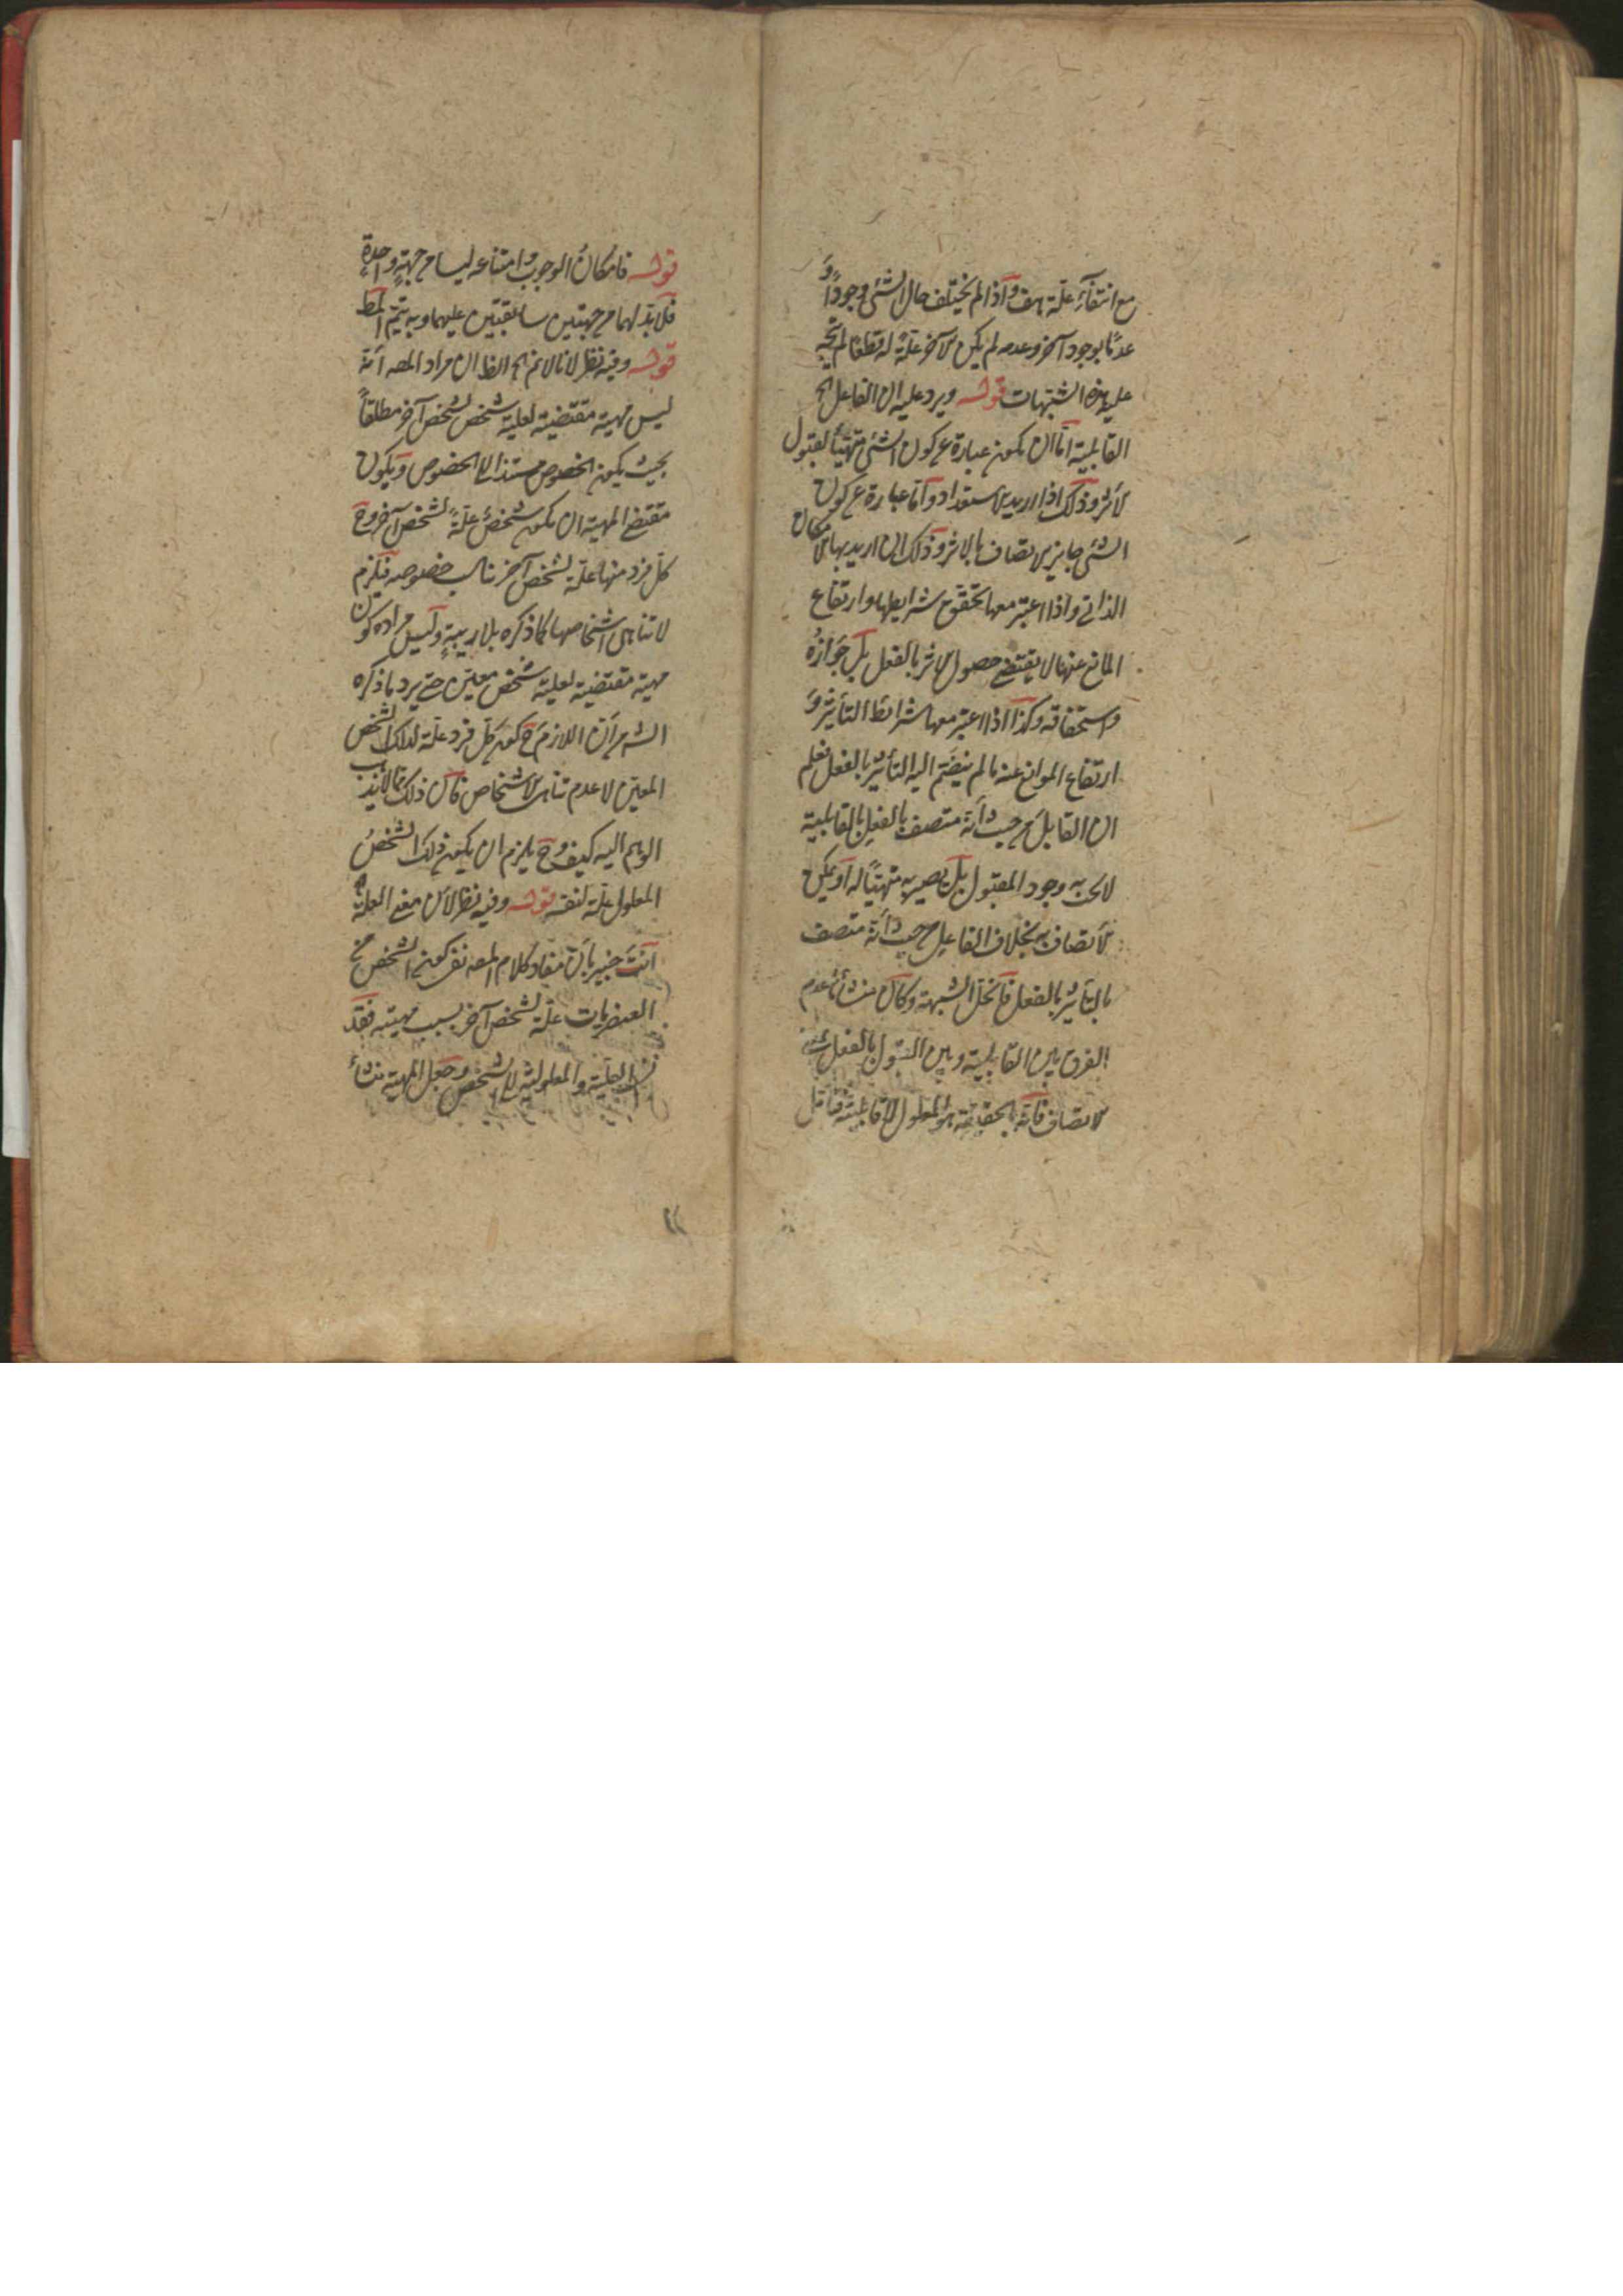 مع انتفاء علته هف واذا لم يختلف حال الشئ وجودًا وَ
عدمًا بوجود آخر وعدمه لم يكن الآخر علّة له قطعًا لم يتجه
عليه هذه الشبهات قوله ويرد عليه ان الفاعل الخ
القابلية امّا ان يكون عبارة عن كون الشئ متهيئًا لقبول
الأثر وذلك اذا اريد الاستعداد وامّا عبارة عن كون
الشئ جايز الاتصاف بالاثر وذلك ان اريد بها الامكان
الذاتى واذا اعتبر معها تحقق شرايطها وارتفاع
المانع عنها لا يقتضى حصول الاثر بالفعل بل جوازُه
واستحقاقه وكذا اذا اعتبر معها شرائط التأثير وَ
ارتفاع الموانع عنه ما لم ينضم اليه التأثير بالفعل فعلم
ان القابل من حيث انّه متصف بالفعل بالقابلية
لا يجب به وجود المقبول بل يصير به متهيئًا له او يمكن
الاتصاف به بخلاف الفاعل من حيث انّه متصف
بالتأثير بالفعل فانحلّ الشبهة وكان منشأها عدم
الفرق بين القابلية وبين القبول بالفعل
الاتصاف فانّه بالحقيقة هو المعلول لا قابليته فتأمّل
قوله فامكانُ الوجوب وامتناعه ليسا من جهةٍ واحدةٍ
فلا بدّ لهما من جهتين سابقتين عليهما وبه يتم المط
قوله وفيه نظر لانا لا نم الخ الظ ان مراد المصه انّه
ليس مهيته مقتضية لعلية شخص لشخص آخر مطلقًا
بحيث يكون الخصوص مستندًا الى الخصوص ويكون
مقتضى المهية ان يكون شخصٌ علّةً لشخص آخر وح
كل فرد منها علّة لشخص آخر خصوصه فيلزم
لا تناهى اشخاصها كما ذكره بلا ريبةٍ وليس مراده كون
مهيته مقتضية لعلية شخص معين حتى يرد ما ذكره
الش من انّ اللازم ح كون كل فرد علّة لذلك الشخص
المعين لا عدم تناهى الاشخاص فان ذلك ممّا لا يذهب
الوهم اليه كيف وح يلزم ان يكون ذلك الشخصُ
المعلول علّة لنفسه قوله وفيه نظر لأن معنى العلّة الخ
انتَ خبير بانّ مفاد كلام المصه نفى كون الشخص من
العنصريات علّة لشخص آخر بسبب مهيته فقد
نسب العليّة والمعلولية للاشخص وجعل المهية منشأ